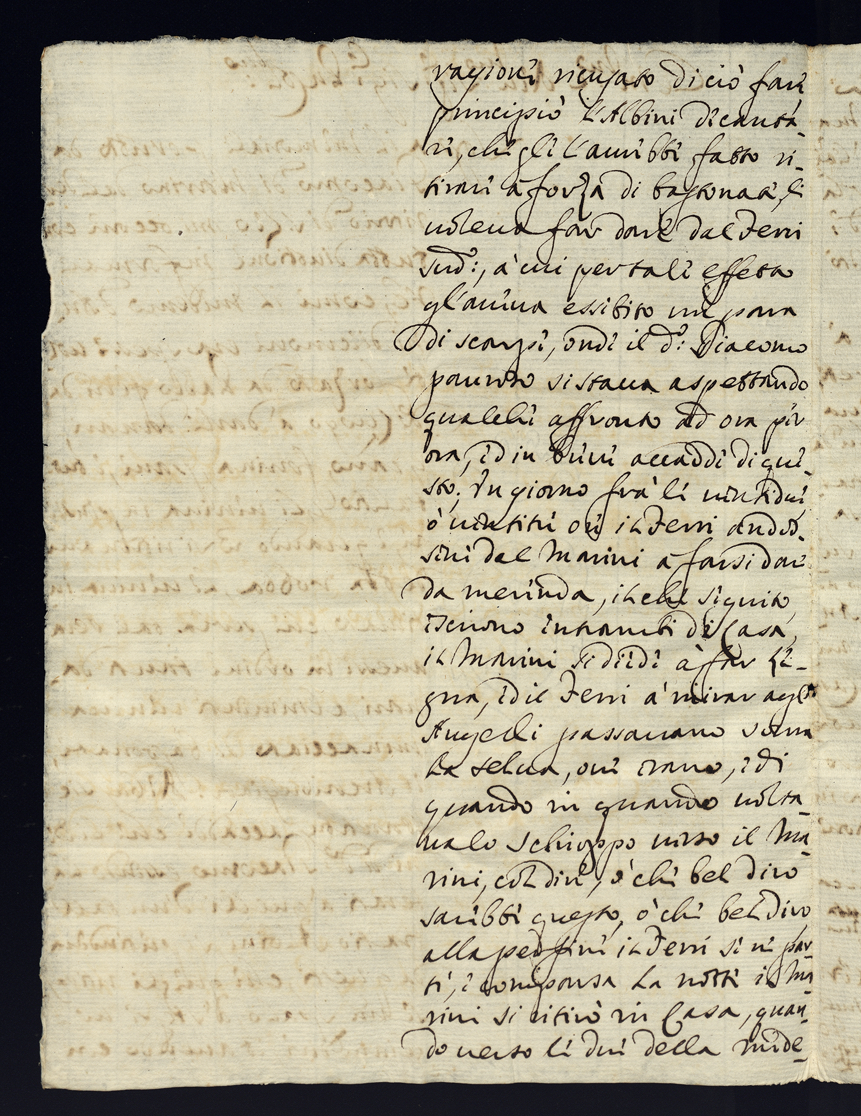 ragioni ricusato di ciò fare
principiò l'Albini di canta-
re, che gli l'averebbe fatto ri-
tirare à forza di bastonate, li
voleva far dare dal Ferri
sud:, à cui per tale effetto
gl'aveva essibito un para
di scarpe, onde il d: Giacomo
pauroso si stava aspettando
qualche affronto ad ora per
ora, ed in breve accadde di que-
sto; Un giorno frà li ventidue
ò ventitre ore il Ferri andò
sene dal Marini a farsi dare
da merenda, il che seguito,
escirono entrambi di Casa,
il Marini si diede à far le-
gna, ed il Ferri à mirar agl'
Augelli passavano verso
la selva, ove erano, e di
quando in quando volta-
va lo schioppo verso il Ma-
rini, col dire, ò che bel tiro
sarebbe questo, ò che bel tiro
alla per fine il Ferri se ne par-
tì, e comparsa la notte il Ma-
rini si ritirò in Casa, quan-
do verso le due della mede-